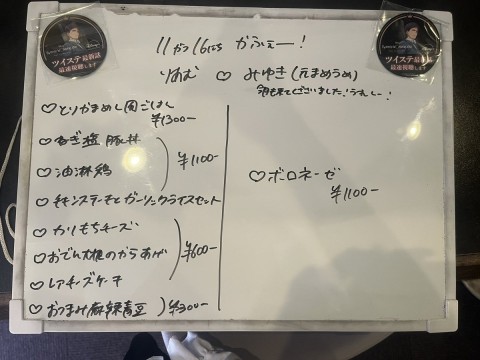 ツイステ最新話
最速視聴します
ツイステ最新話
最速視聴します
11がつ16にち かふぇー!
りあむ ♡ みゆき(元まめうめ)
♡とりかまめし風ごはん
¥1300-
♡ねぎ塩豚丼
♡油淋鶏
¥1100-
♡チキンステーキとガーリックライスセット
♡カリもちチーズ
♡おでん大根のからあげ
¥600-
♡レアチーズケーキ
♡おつまみ麻辣青豆 ¥300-
♡ボロネーゼ
¥1100-